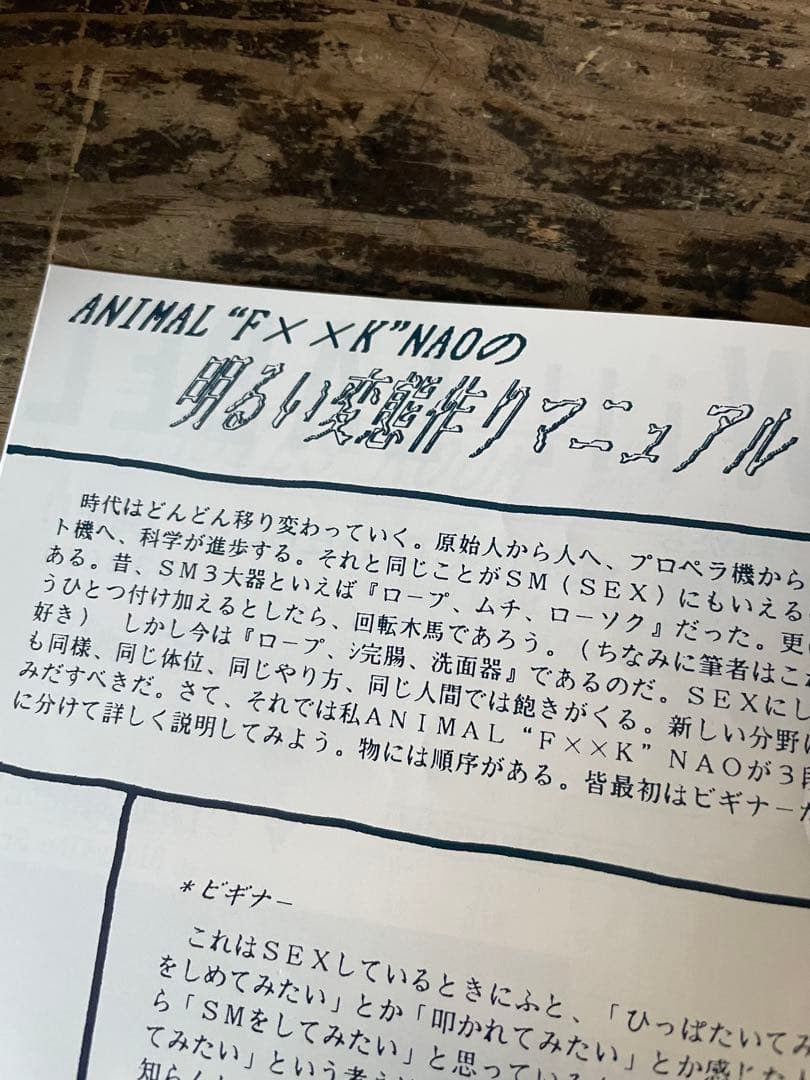 ANIMAL “F××K”NAOの
明るい変態作りマニュアル
時代はどんどん移り変わっていく。原始人から人へ、プロペラ機から
ト機へ、科学が進歩する。それと同じことがSM（SEX）にもいえる
ある。昔、SM３大器といえば『ロープ、ムチ、ローソク』だった。更に
うひとつ付け加えるとしたら、回転木馬であろう。（ちなみに筆者はこれ
好き） しかし今は『ロープ、ｼ完腸、洗面器』であるのだ。SEXにし
も同様、同じ体位、同じやり方、同じ人間では飽きがくる。新しい分野に
みだすべきだ。さて、それでは私ANIMAL “F××K” NAOが３段
に分けて詳しく説明してみよう。物には順序がある。皆最初はビギナーだ
*ビギナー
これはSEXしているときにふと、「ひっぱたいてみ
をしめてみたい」とか「叩かれてみたい」とか感じた
ら「SMをしてみたい」と思っている
てみたい」という考え
知らん